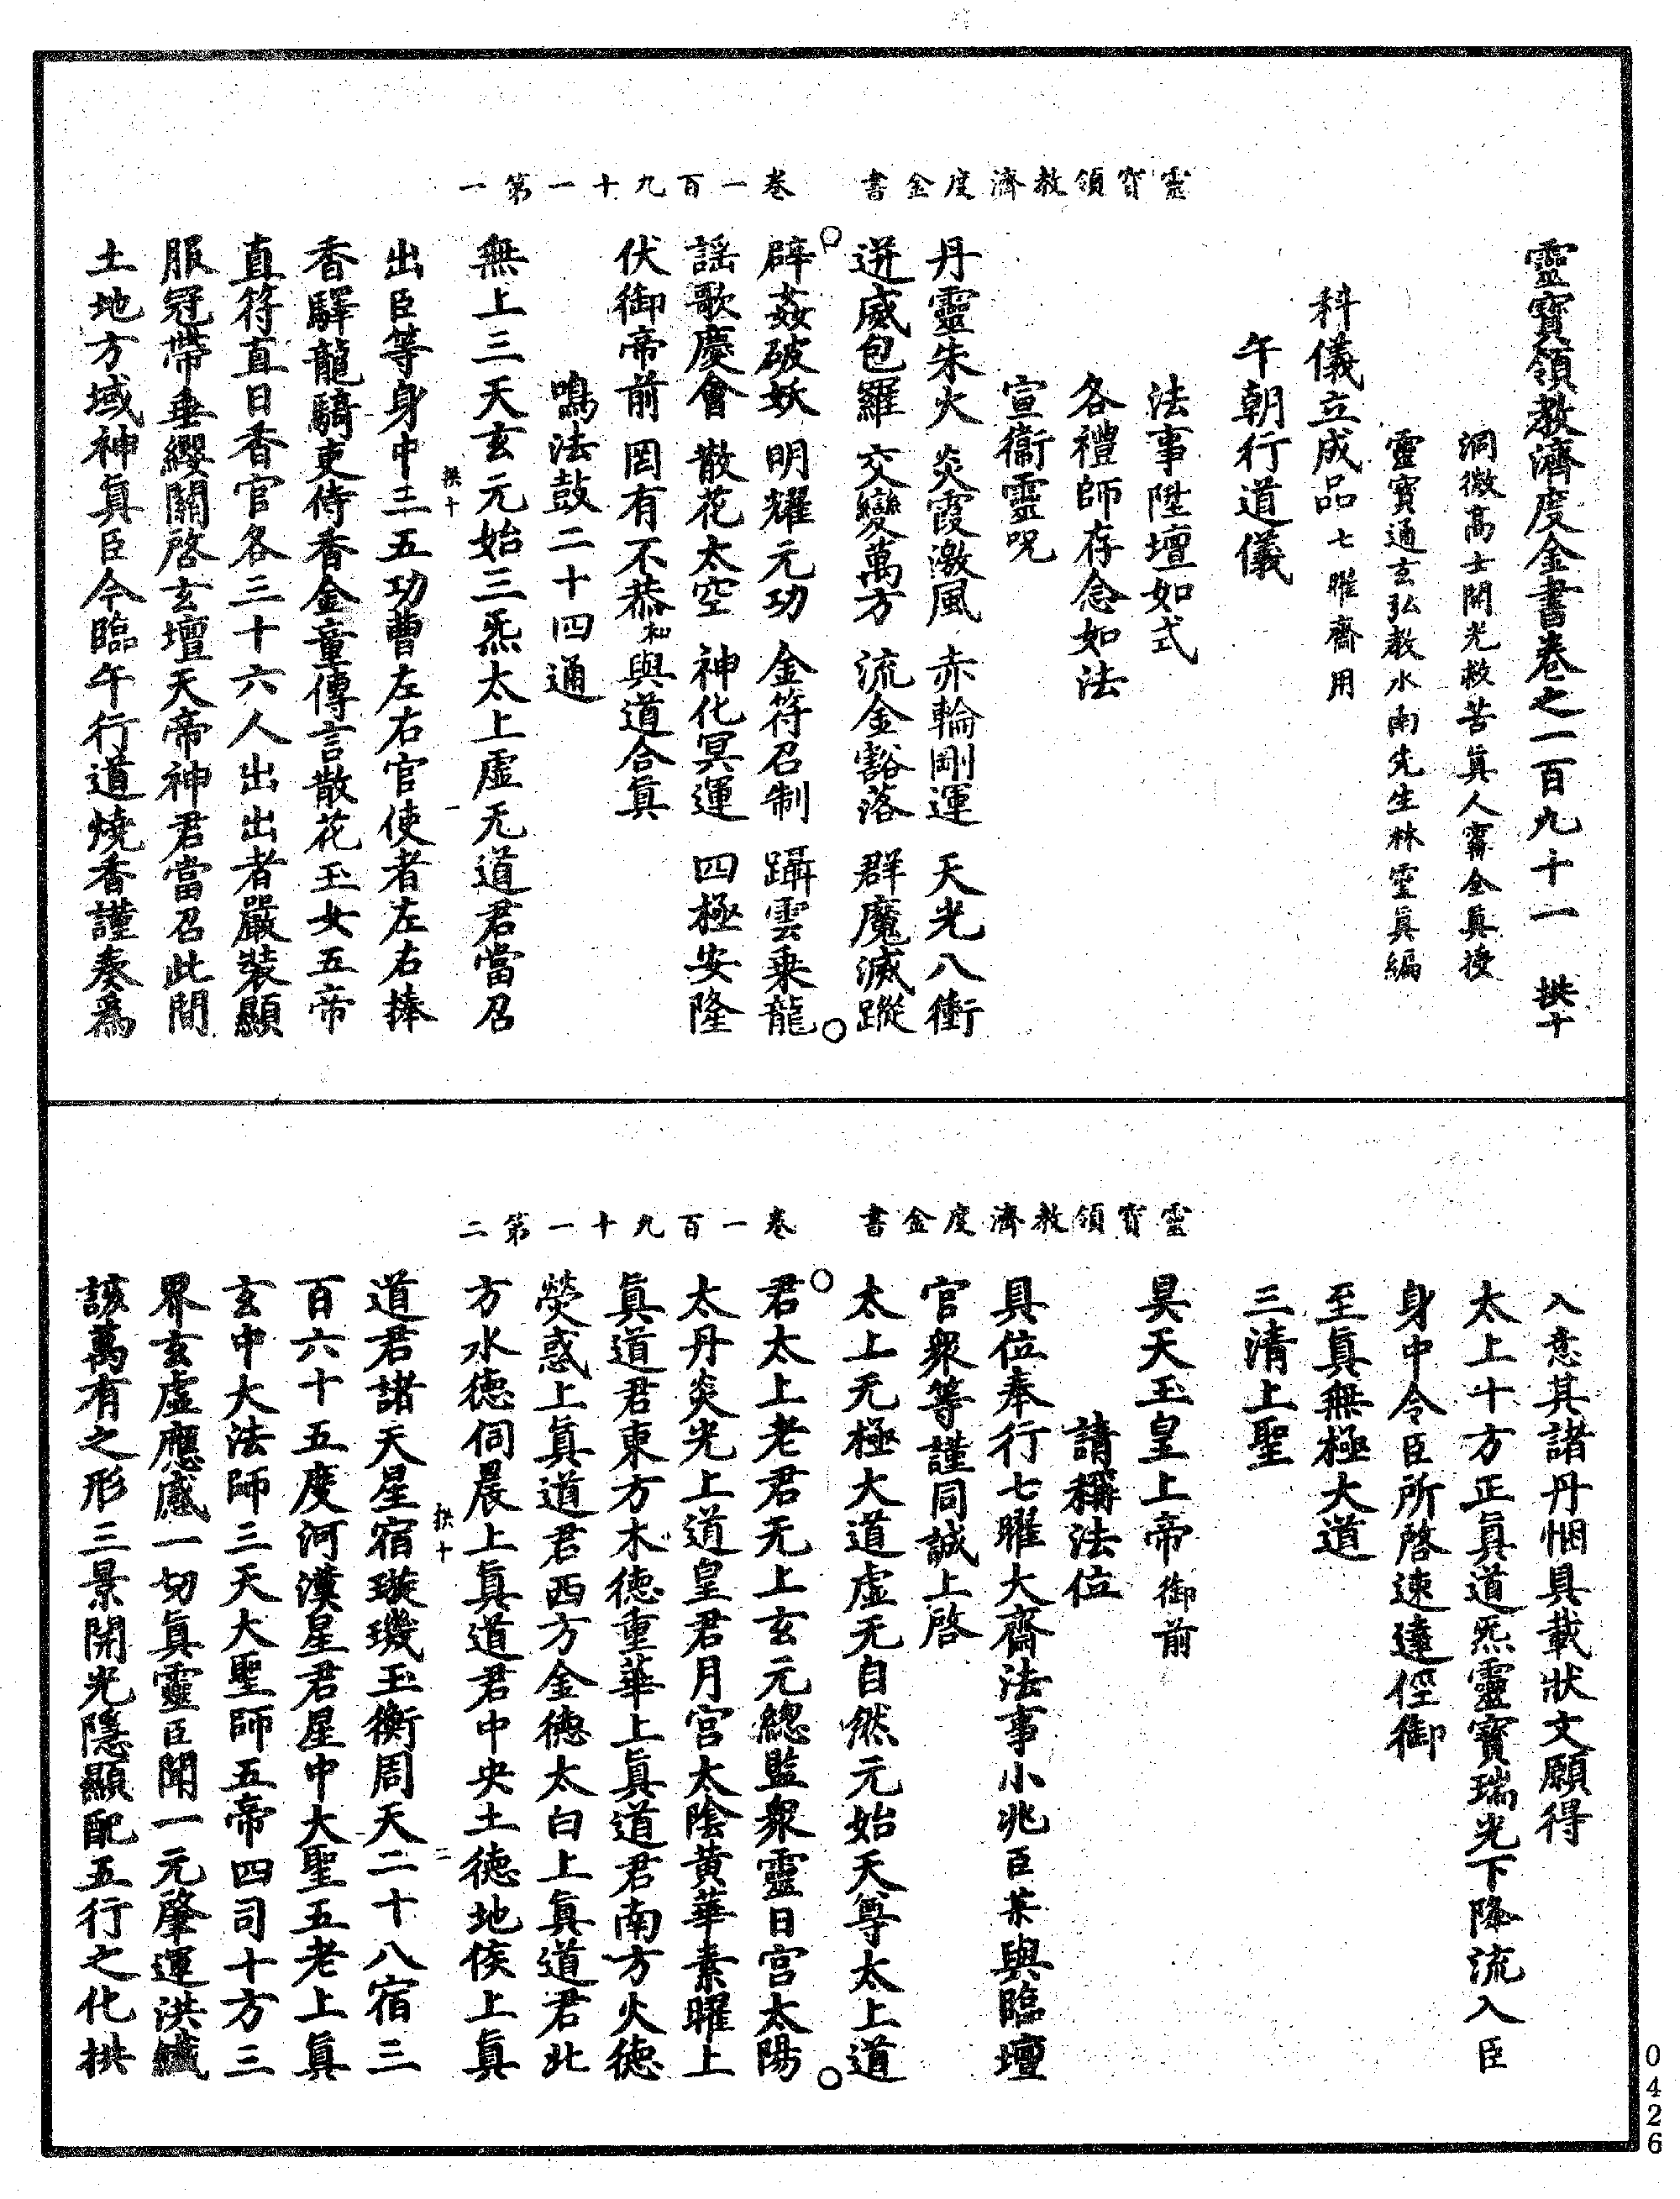 靈寶領教濟度金書卷之一百九十一　拱十
洞微高士開光救苦眞人甯全眞授
靈寶通玄弘教水南先生林靈眞編
科儀立成品七曜齋用
午朝行道儀
法事陞壇如式
各禮師存念如法
宣衞靈呪
丹靈朱火　炎霞激風　赤輪剛運　天光八衝
迸威包羅　交變萬方　流金豁落　群魔滅蹤
辟姦破妖　明耀元功　金符召制　躡雲乗龍
謡歌慶會　散花太空　神化冥運　四極安隆
伏御帝前　罔有不恭和與道合眞
鳴法鼓二十四通
無上三天玄元始三炁太上虚无道君當召
出臣等身中三五功曹左右官使者左右捧
香驛龍騎吏侍香金童傳言散花玉女五帝
直符直日香官各三十六人出出者嚴裝顯
服冠帶垂纓關啓玄壇天帝神君當召此間
土地方域神眞臣今臨午行道燒香謹奏爲
靈寳領教濟度金書　卷一百九十一第一
拱十　一
入意其諸丹悃具載狀文願得
太上十方正眞道炁靈寳瑞光下降流入臣
身中令臣所啓速達徑御
至眞無極大道
三清上聖
昊天玉皇上帝御前
請稱法位
具位奉行七曜大齋法事小兆臣某與臨壇
官衆等謹同誠上啓
太上无極大道虚无自然元始天尊太上道
君太上老君无上玄元總監衆靈日宫太陽
太丹炎光上道皇君月宫太陰黄華素曜上
眞道君東方木德重華上眞道君南方火德
熒惑上眞道君西方金德太白上眞道君北
方水德伺晨上眞道君中央土德地侯上眞
道君諸天星宿璇璣玉衡周天二十八宿三
百六十五度河漢星君星中大聖五老上眞
玄中大法師三天大聖師五帝四司十方三
界玄虚應感一切眞靈臣聞一元肇運洪纎
該萬有之形三景開光隱顯配五行之化拱
靈寳領教濟度金書　卷一百九十一第二
拱十　二
0426